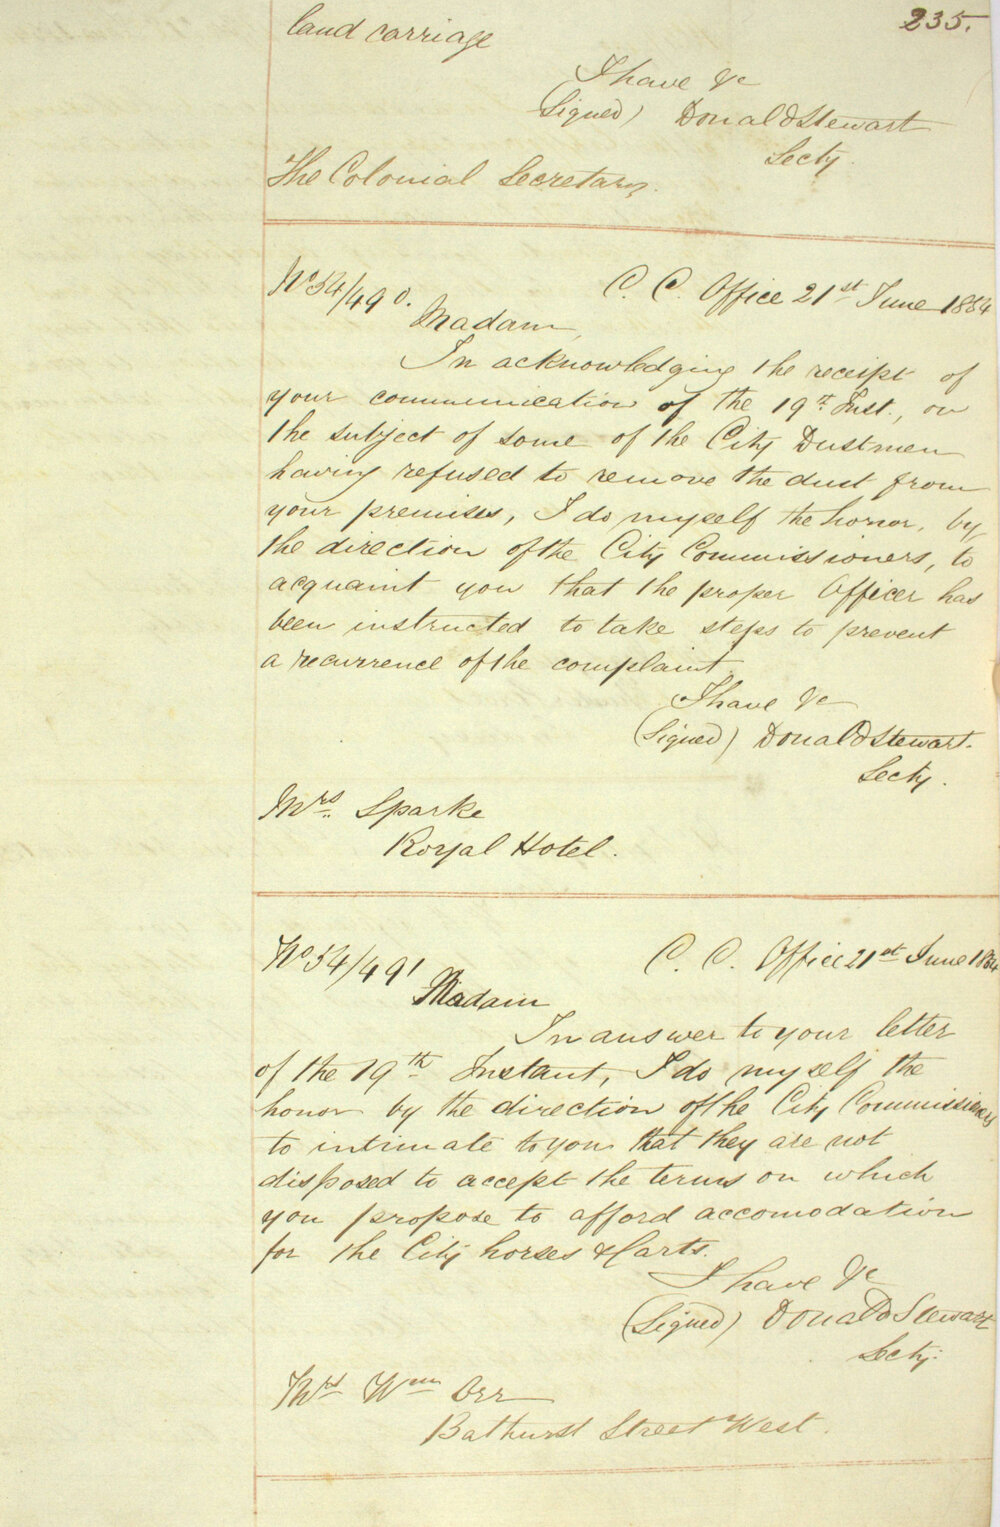 235.
land carriage
I have &c
(Signed) Donald Stewart
Secty.
The Colonial Secretary.
No 54/490.
C. C. Office 21st June 1854
Madam,
In acknowledging the receipt of
your communication of the 19th Inst., on
the subject of some of the City Dustmen
having refused to remove the dust from
your premises, I do myself the honor, by
the direction of the City Commissioners, to
acquaint you that the proper Officer has
been instructed to take steps to prevent
a recurrence of the complaint.
I have &c
(Signed) Donald Stewart.
Secty.
Mrs. Sparke
Royal Hotel.
No 54/491
C. C. Office 21st June 1854
Madam
In answer to your letter
of the 19th Instant, I do myself the
honor by the direction of the City Commissioners
to intimate to you that they are not
disposed to accept the terms on which
you propose to afford accomodation
for the City horses & Carts.
I have &c
(Signed) Donald Stewart
Secty:
Mrs Wm Orr
Bathurst Street West.